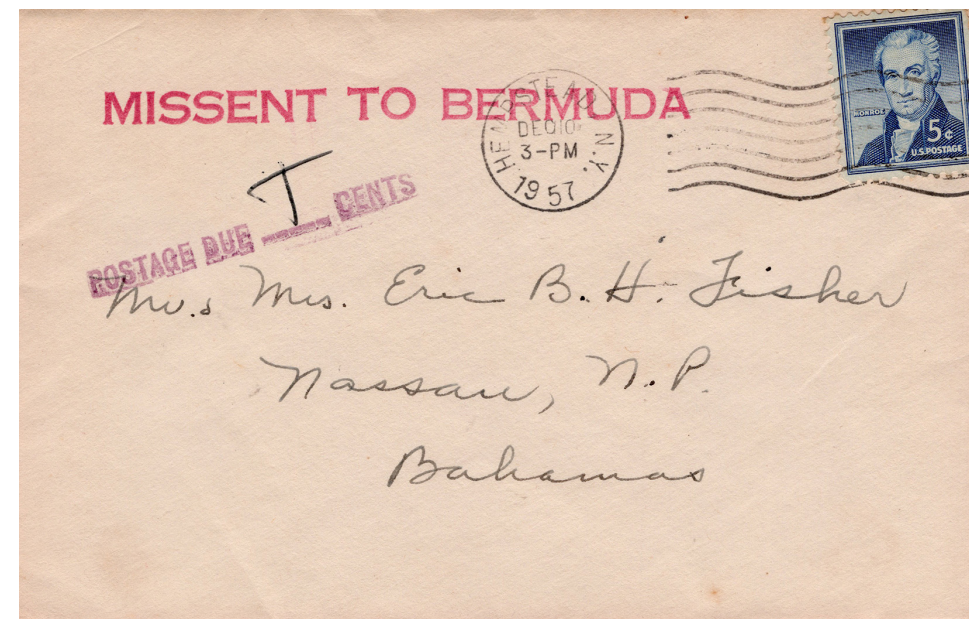 MISSENT TO BERMUDA
HEMPSTEAD, N.Y.
DEC 10
3-PM
1957
MONROE
5¢
U.S. POSTAGE
T
POSTAGE DUE ___ CENTS
Mr. & Mrs. Eric B. H. Fisher
Nassau, N.P.
Bahamas